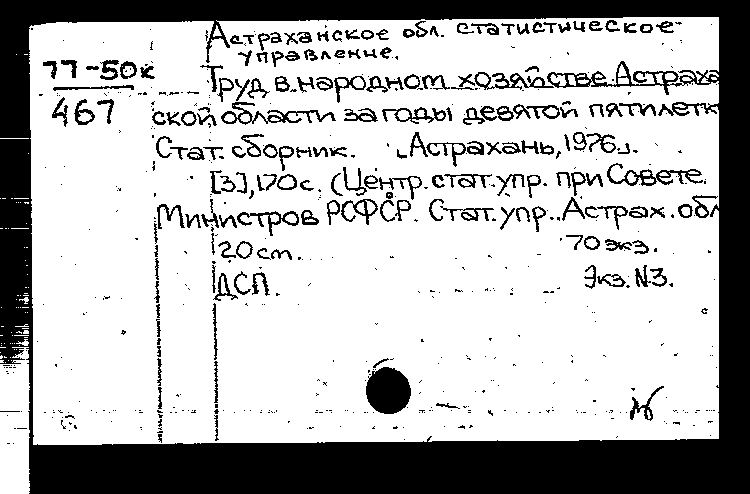 Астраханское обл. статистическое
управление.
77-50к
467
Труд в народном хозяйстве Астраха
ской области за годы девятой пятилетк
Стат. сборник. [Астрахань, 1976].
[3], 170с. (Центр. стат. упр. при Совете
Министров РСФСР. Стат. упр. Астрах. обл
20 см. 70 экз.
ДСП. Экз. N3.